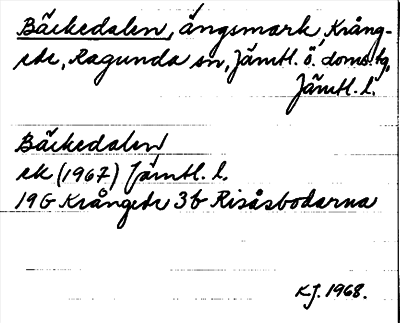 Bäckedalen, ängsmark, Krång-
ede, Ragunda sn, Jämtl. ö. doms. tg,
Jämtl. l.
Bäckedalen
ek (1967) Jämtl. l.
19G Krångede 3b Risåsbodarna
KJ. 1968.